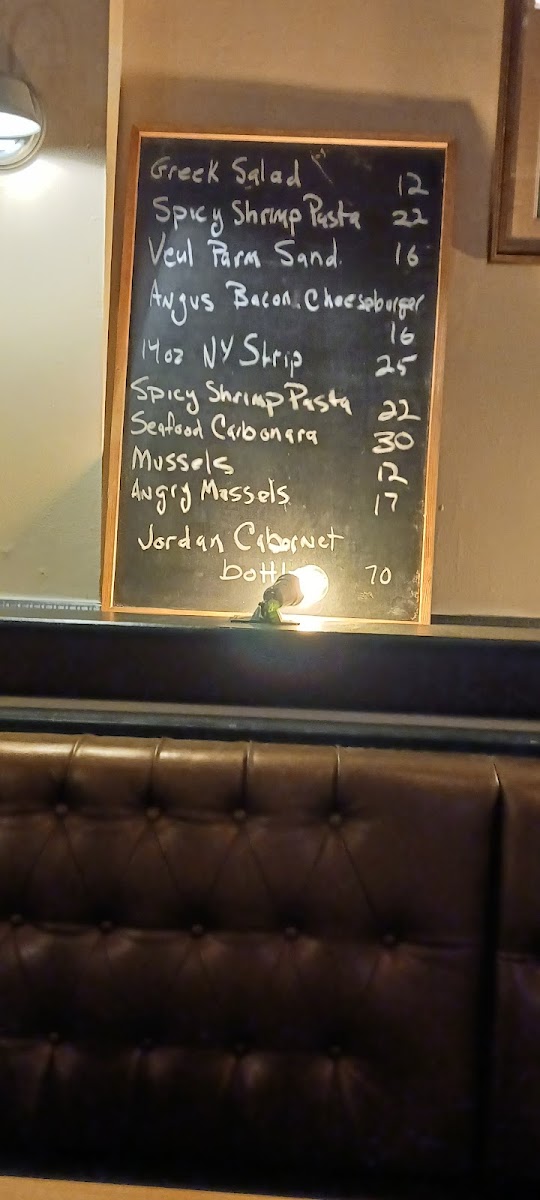 Greek Salad 12
Spicy Shrimp Pasta 22
Veal Parm Sand. 16
Angus Bacon Cheeseburger
16
14oz NY Strip 25
Spicy Shrimp Pasta 22
Seafood Carbonara 30
Mussels 12
Angry Mussels 17
Jordan Cabernet
bottle 70